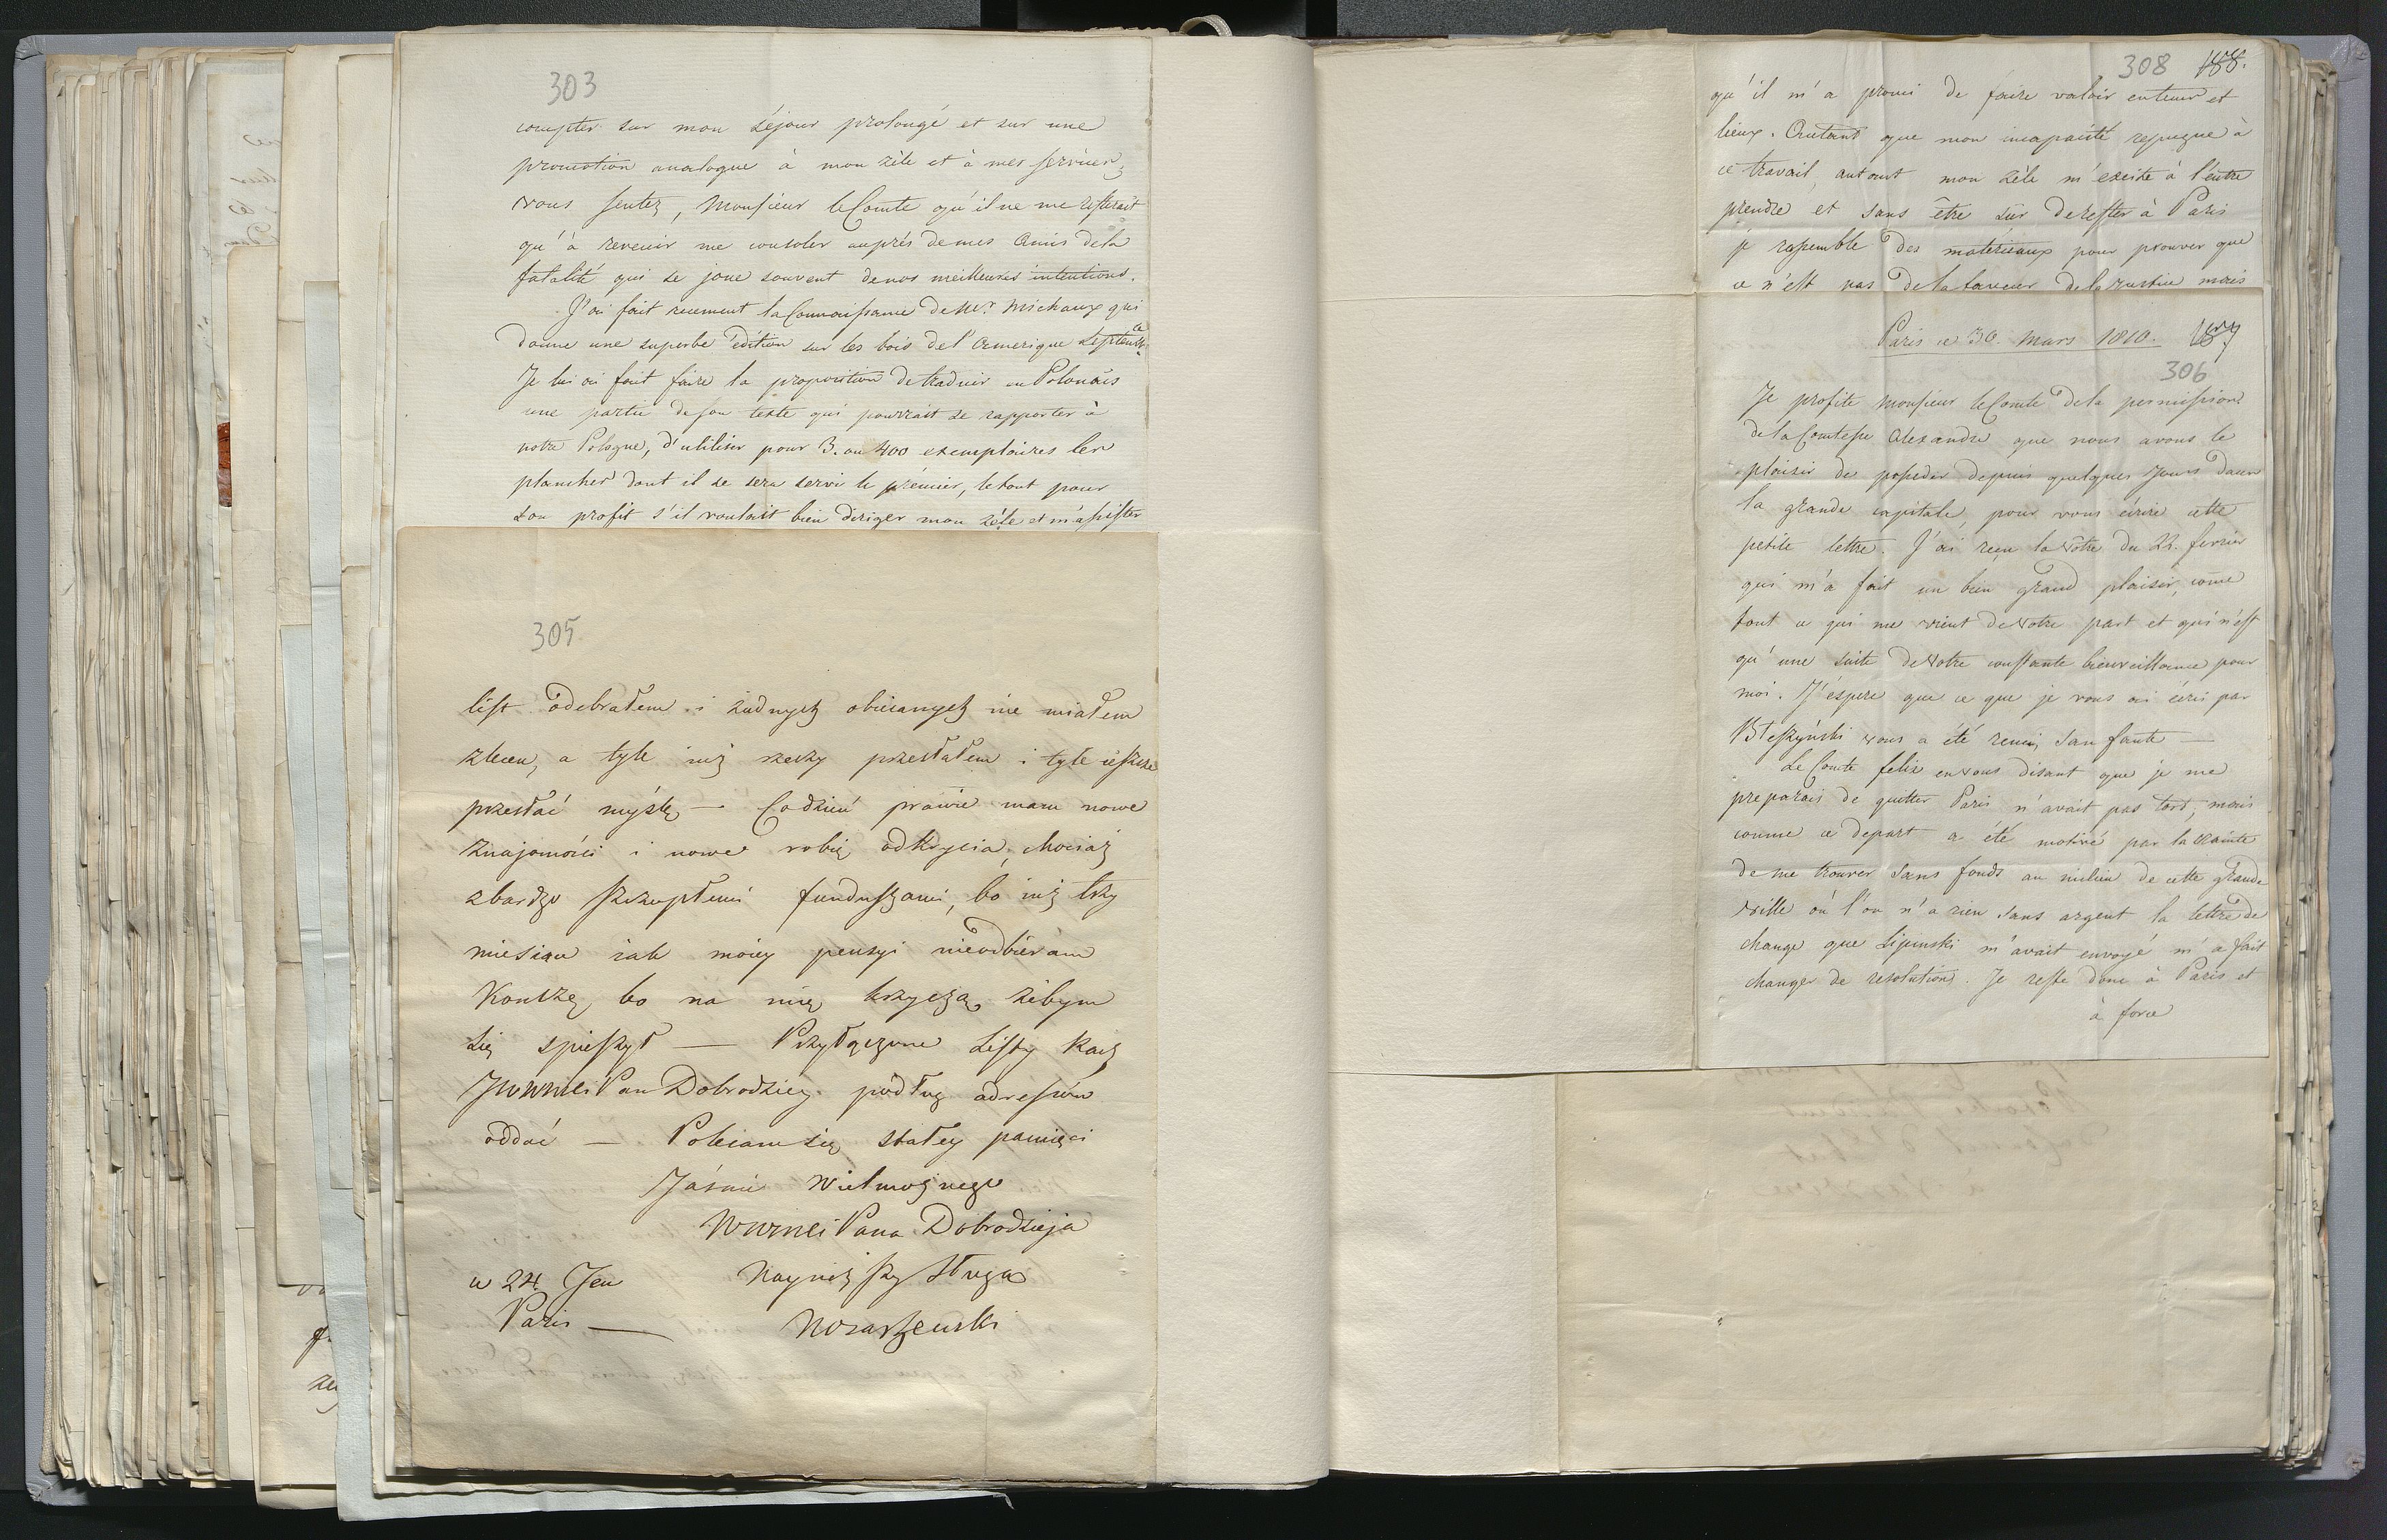 303
compter sur mon séjour prolongé et sur une
promotion analogue à mon zèle et à mes services
vous sentez, Monsieur le Comte qu'il ne me resterait
qu'à revenir me consoler auprès de mes Amis de la
fatalité qui se joue souvent de nos meilleures intentions.
J'ai fait recement la Connoissance de Mr. Michaux qui
donne une superbe édition sur les bois de l'Amerique
Je lui ai fait faire la proposition de traduir en Polonais
une partie de son texte qui pourrait se rapporter à
notre Pologne, d'utiliser pour 3. ou 400 exemplaires les
planches dont il se sera servi le prémier, le tout pour
son profit s'il voulait bien diriger mon zéle et m'assister
305
list odebrałem i żadnych obiecanych nie miałem
zleceń, a tyle iuż rzeczy przesłałem i tyle ieszcze
przesłać myślę — Codzień prawie mam nowe
znajomości i nowe robię odkrycia, chociaż
z bardzo szczupłemi funduszami, bo iuż trzy
miesiące iak moiey pensyi nieodbieram
Kończę, bo na mię krzyczą żebym
się spieszył — Przyłączone Listy Racz
JWWMci Pan Dobrodziey podług adressów
oddać — Polecam się stałey pamięci
Jaśnie Wielmożnego
WWMci Pana Dobrodzieja
ce 24 Jen Nayniższy Sługa
Paris —
308 188.
qu'il m'a promi de faire valoir en tems et
lieux. Autant que mon incapacité repugne à
ce travail, autant mon zèle m'excite à l'entre
prendre et sans être sûr de rester à Paris
je rassemble des matériaux pour prouver que
ce n'est pas de la faveur de la justice mais
Paris ce 30. Mars 1810. 187
306
Je profite Monsieur le Comte de la permission
de la Comtesse Alexandre que nous avons le
plaisir de posseder depuis quelques jours dans
la grande capitale, pour vous écrire cette
petite lettre. J'ai reçu la vôtre du 22. fevrier
qui m'a fait un bien grand plaisir, come
tout ce qui me vient de votre part et qui n'est
qu'une suite de votre constante bienveillance pour
moi. J'éspere que ce que je vous ai écris par
Błeszyński vous a été remis san faute —
Le Comte felix en vous disant que je me
preparais de quitter Paris n'avait pas tord, mais
comme ce depart a été motivé par la crainte
de me trouver sans fonds au milieu de cette grande
ville où l'on n'a rien sans argent la lettre de
change que Lipinski m'avait envoyé m'a fait
changer de resolution. Je reste donc à Paris et
à force